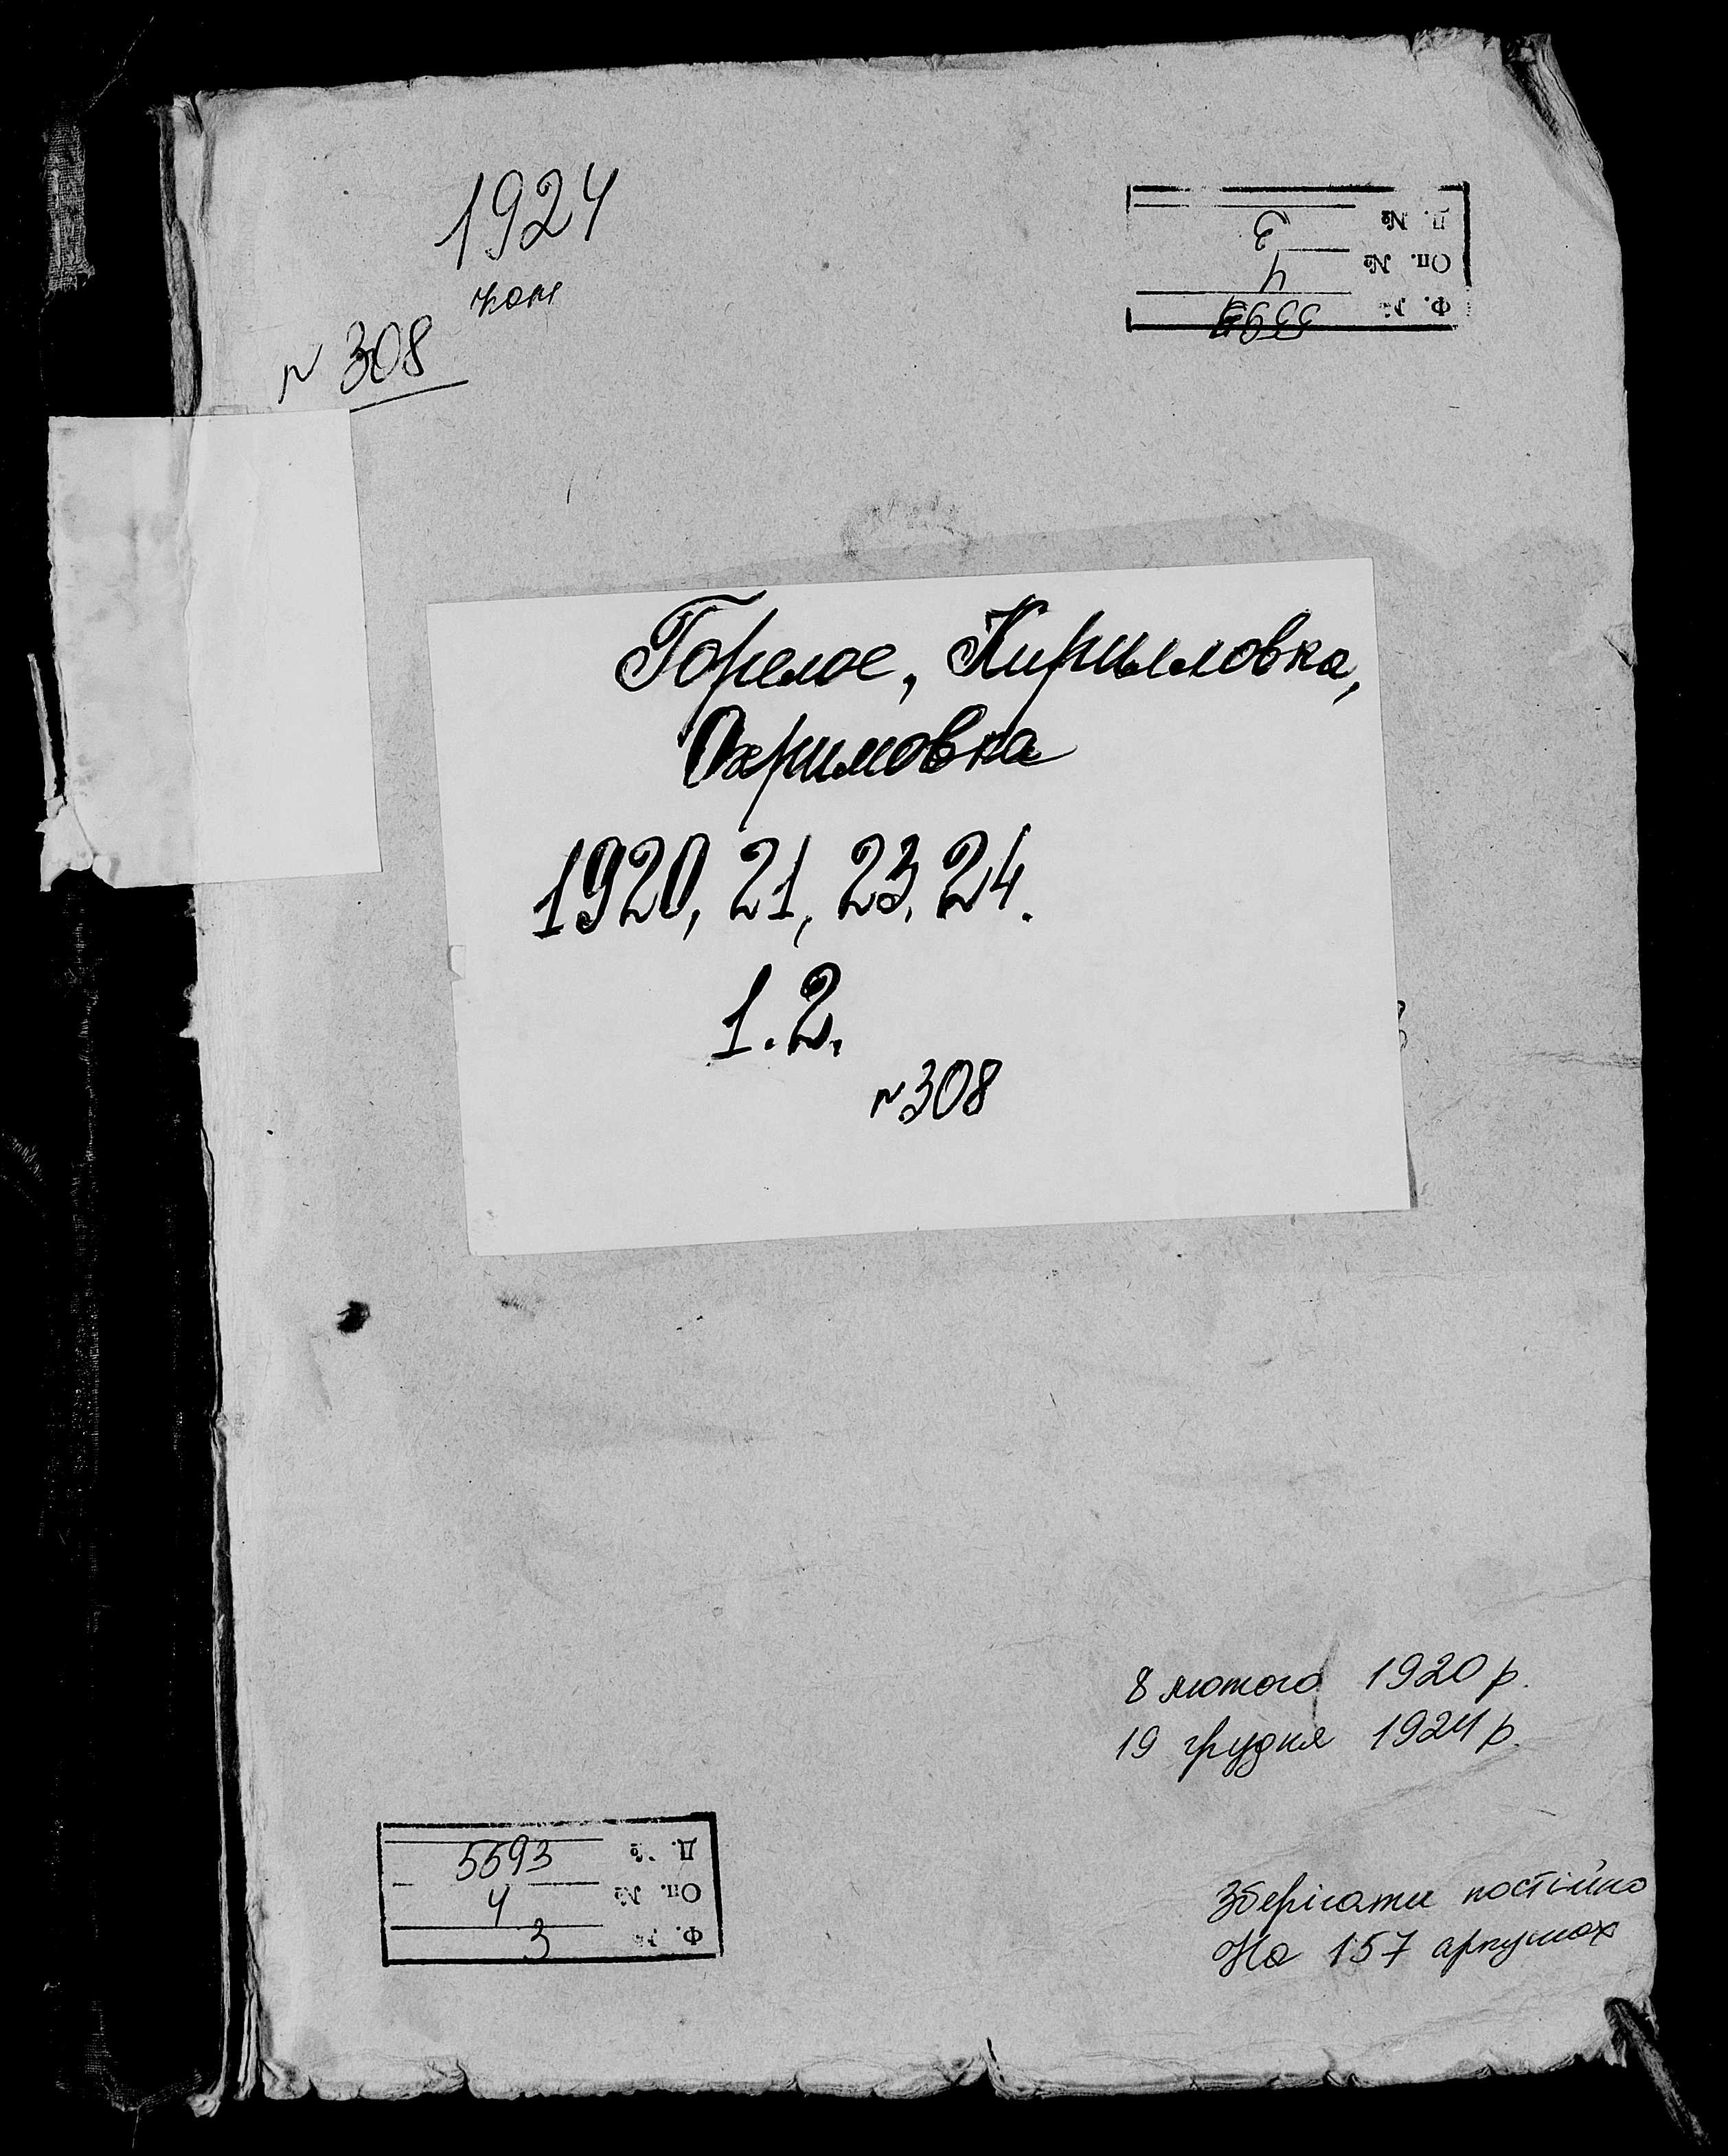 1924
N 308
Д. № 3
Оп. № 4
Ф. №
Горелое, Кирилловка,
Охримовка
1920, 21, 23, 24.
1. 2.
N 308
8 лютого 1920 р.
19 грудня 1924 р.
Д. № 5593
Оп. № 4
Ф. № 3
Зберігати постійно
На 157 аркушах